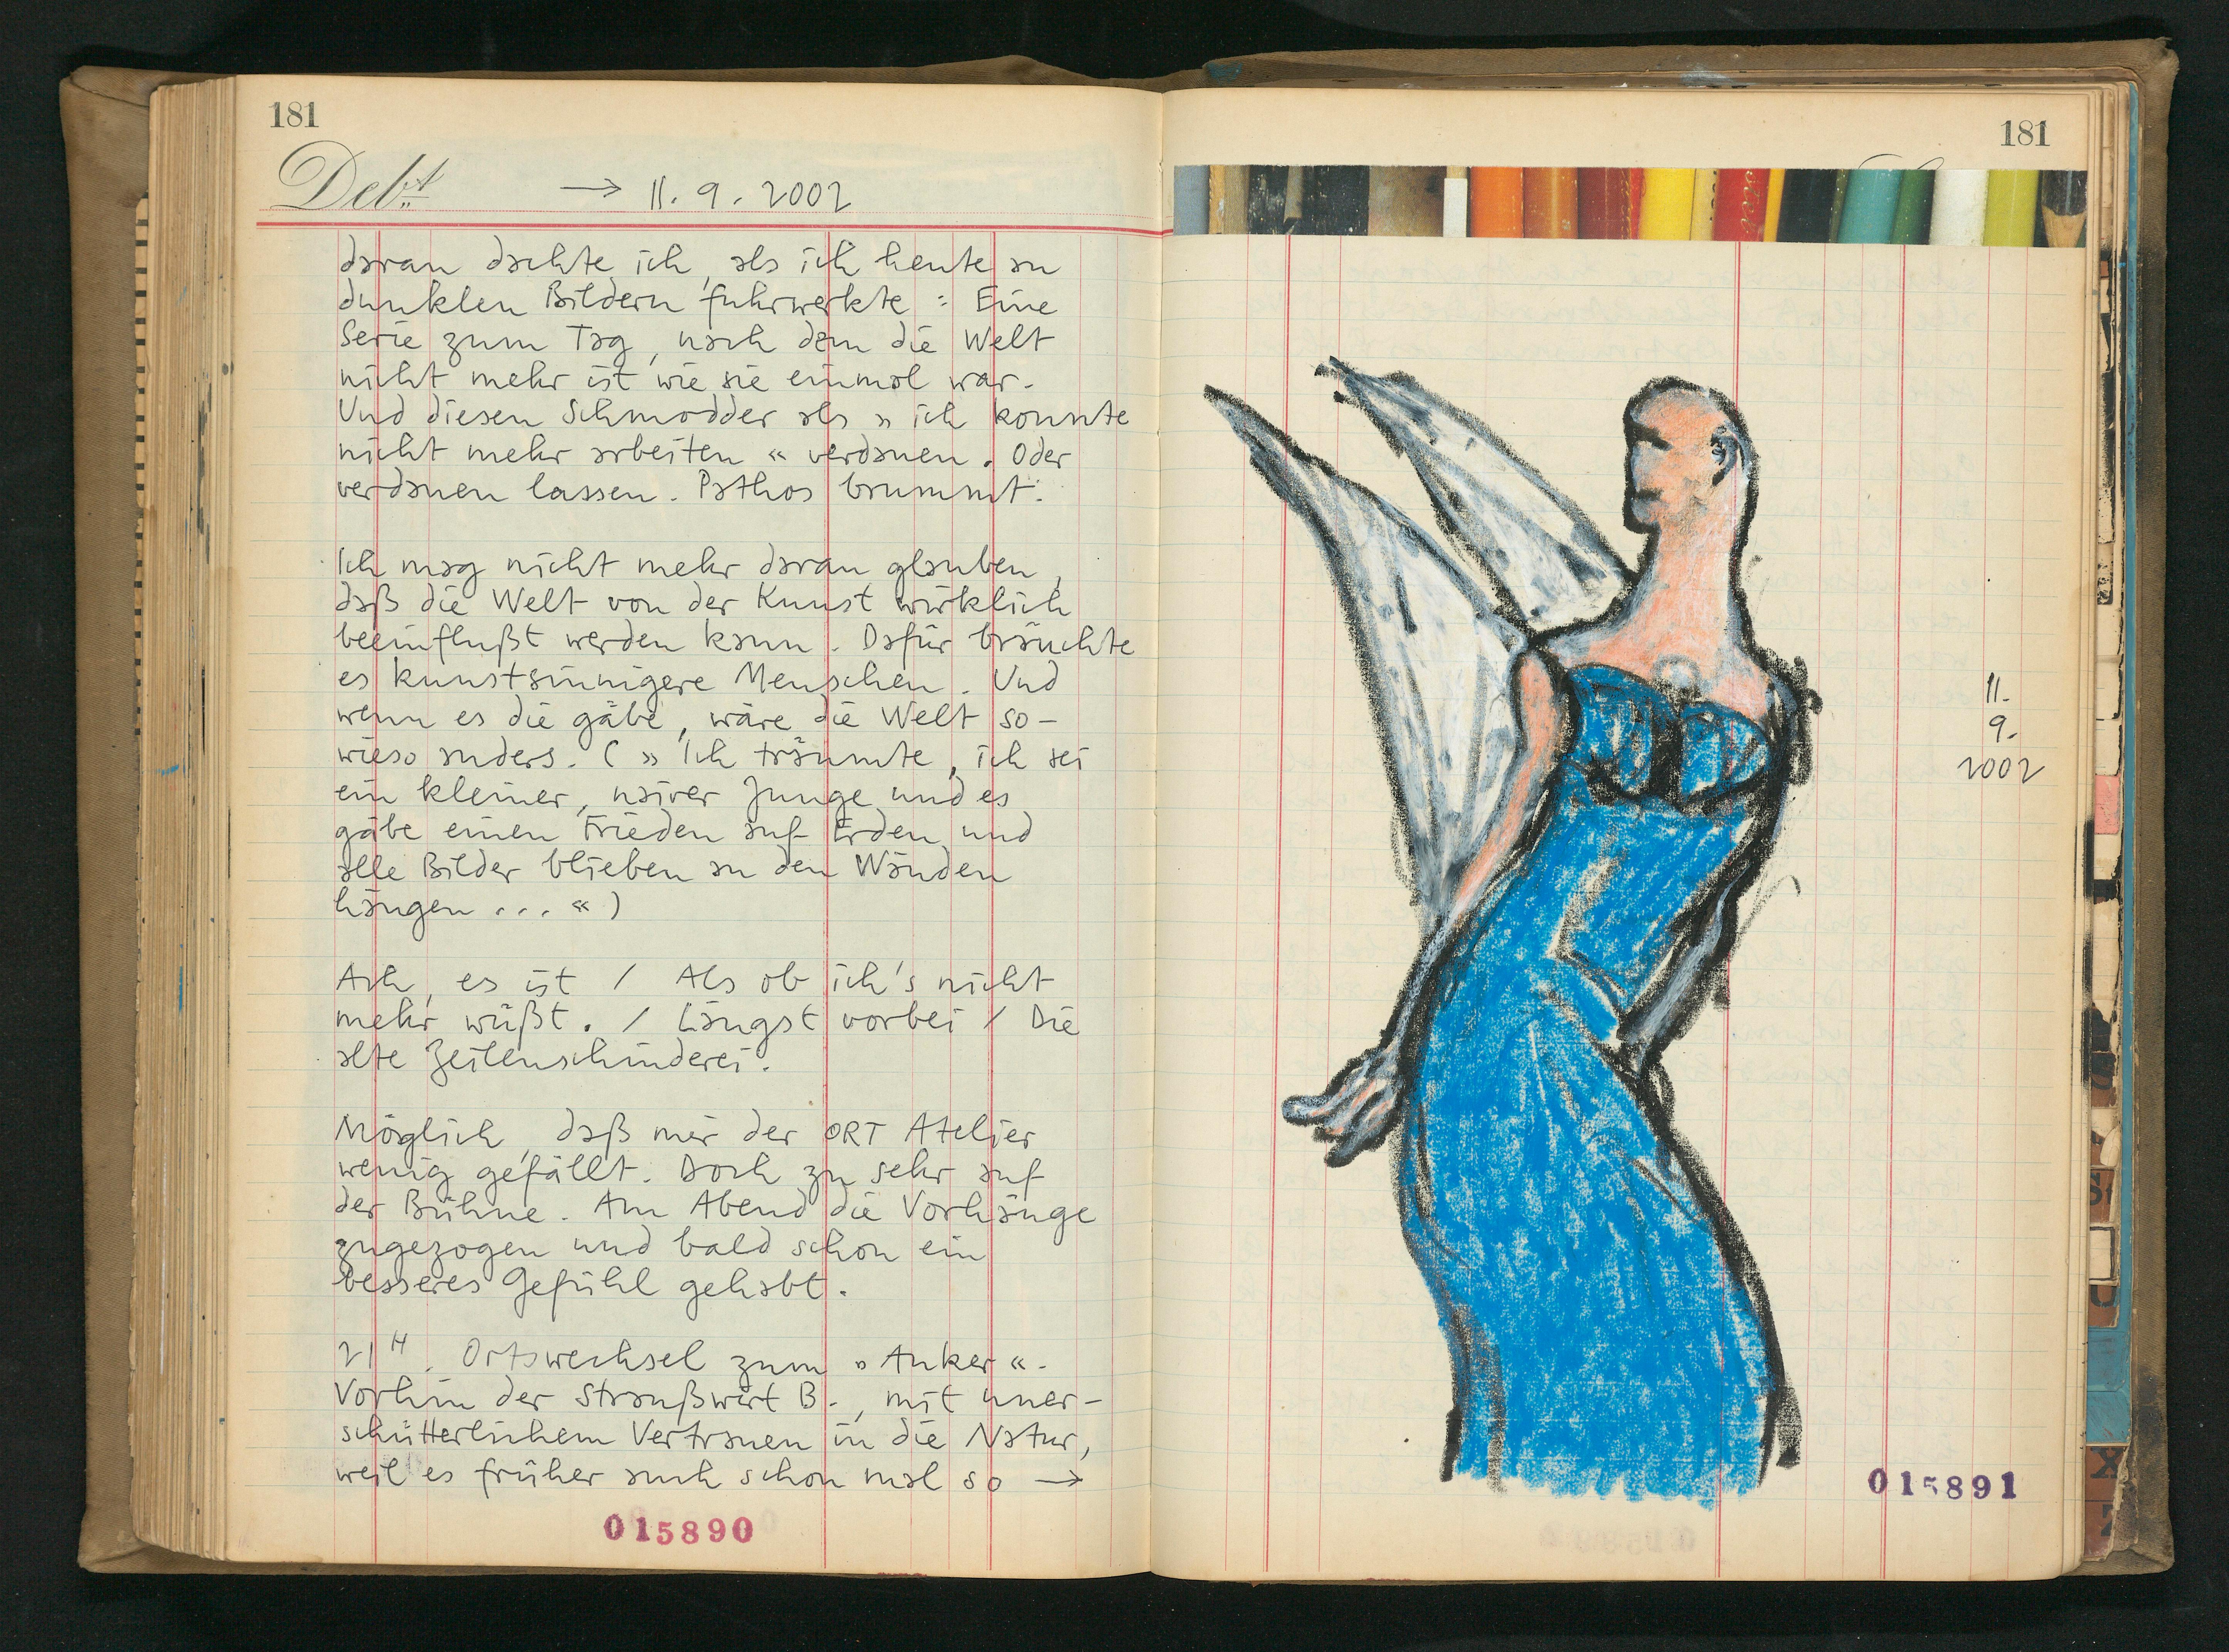 181
Debt
→ 11. 9. 2002
daran dachte ich, als ich heute an
dunklen Bildern fuhrwerkte: Eine
Serie zum Tag, nach dem die Welt
nicht mehr ist wie sie einmal war.
Und diesen Schmodder als » ich konnte
nicht mehr arbeiten « verdauen. Oder
verdauen lassen. Pathos brummt.
Ich mag nicht mehr daran glauben,
daß die Welt von der Kunst wirklich
beeinflußt werden kann. Dafür bräuchte
es kunstsinnigere Menschen. Und
wenn es die gäbe, wäre die Welt so-
wieso anders. ( » Ich träumte, ich sei
ein kleiner, naiver Junge und es
gäbe einen Frieden auf Erden und
alle Bilder blieben an den Wänden
hängen ... « )
Ach, es ist / Als ob ich's nicht
mehr wüßt. / Längst vorbei / Die
alte Zeilenschinderei.
Möglich, daß mir der ORT Atelier
wenig gefällt. Doch zu sehr auf
der Bühne. Am Abend die Vorhänge
zugezogen und bald schon ein
besseres Gefühl gehabt.
21 H. Ortswechsel zum » Anker «.
Vorhin der Straußwirt B., mit uner-
schütterlichem Vertrauen in die Natur,
weil es früher auch schon mal so →
015890
181
11.
9.
2002
015891